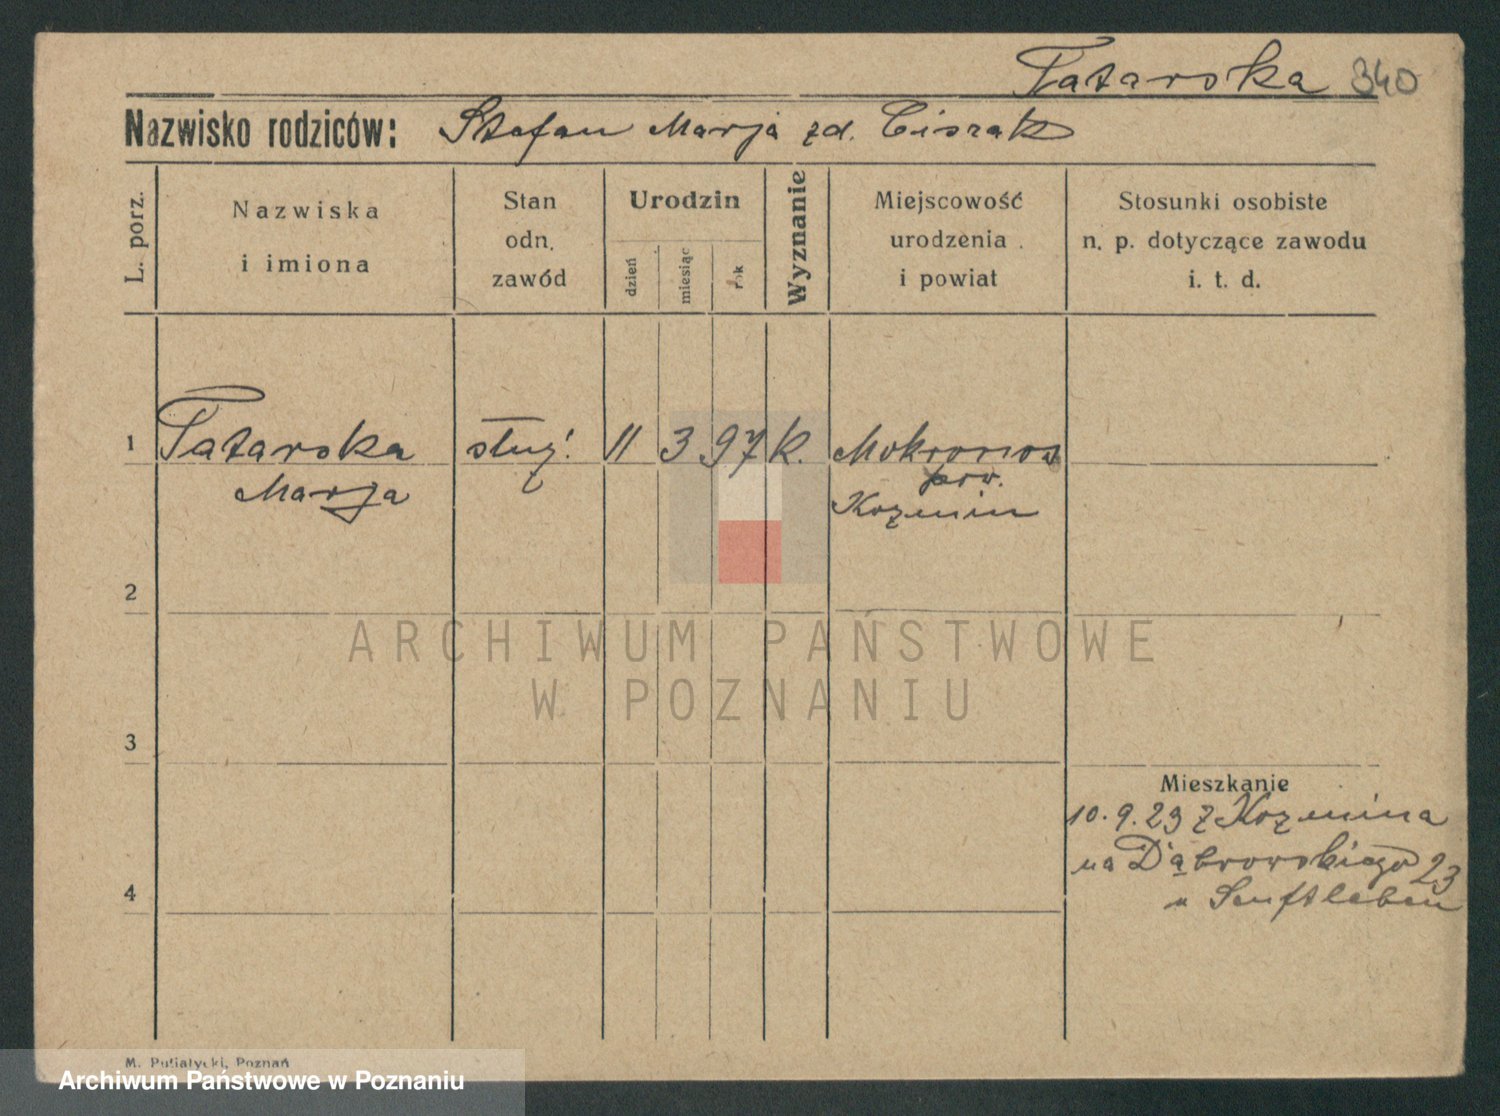 Tatarska 340
Nazwisko rodziców: Stefan Marja zd. Ciszak
L. porz.
Nazwiska
i imiona
Stan
odn.
zawód
Urodzin
dzień
miesiąc
rok
Wyznanie
Miejscowość
urodzenia
i powiat
Stosunki osobiste
n. p. dotyczące zawodu
i. t. d.
1 Tatarska służ. 11 3 97 k. Mokronos
Marja pow.
Kozmin
2
ARCHIWUM PAŃSTWOWE
W POZNANIU
3
Mieszkanie
10.9.23 z Kozmina
na Dąbrowskiego 23
u Senftleben
4
M. Putiatycki, Poznań
Archiwum Państwowe w Poznaniu